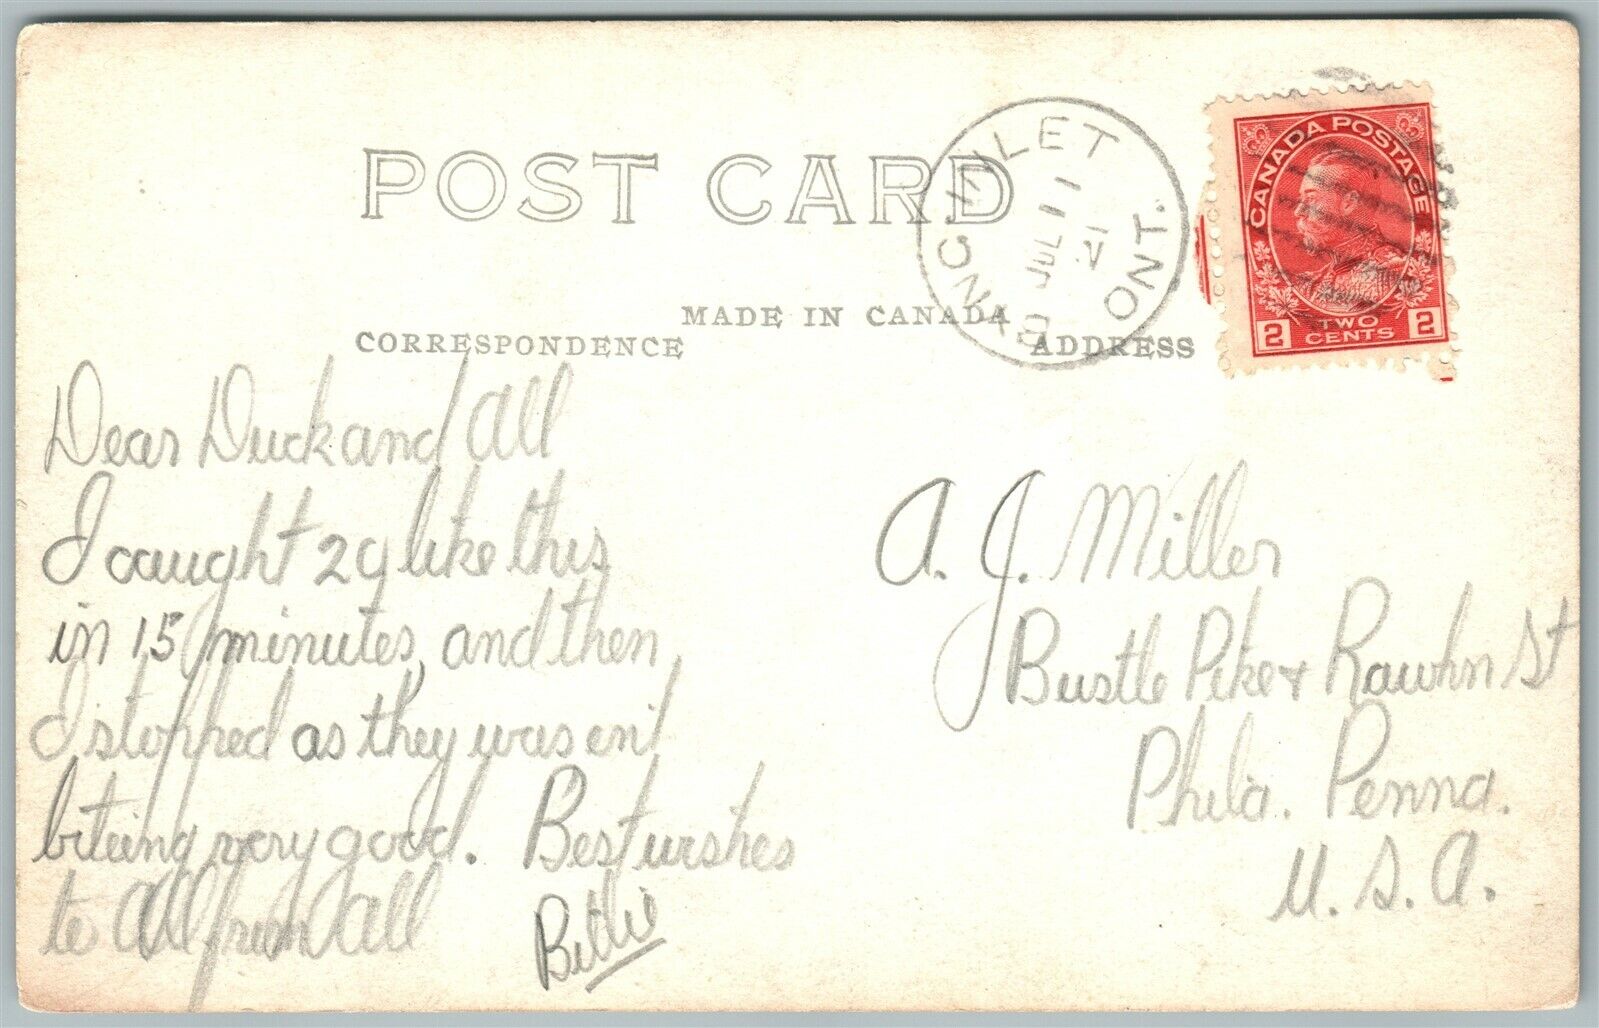 POST CARD
MADE IN CANADA
CORRESPONDENCE
ADDRESS
INLET
ONT.
JUL 11
21
CANADA POSTAGE
2 TWO CENTS 2
Dear Duck and All
I caught 29 like this
in 15 minutes, and then
I stopped as they wasent
biteing very good. Best wishes
to All from All
A. J. Miller
Bustle Pike & Rawhn St
Phila. Penna.
U. S. A.